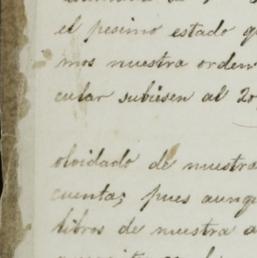 el pesimo estado q
mos nuestra orden
cular subiesen al 20
olvidado de nuestra
cuenta; pues aunq
libros de nuestra a